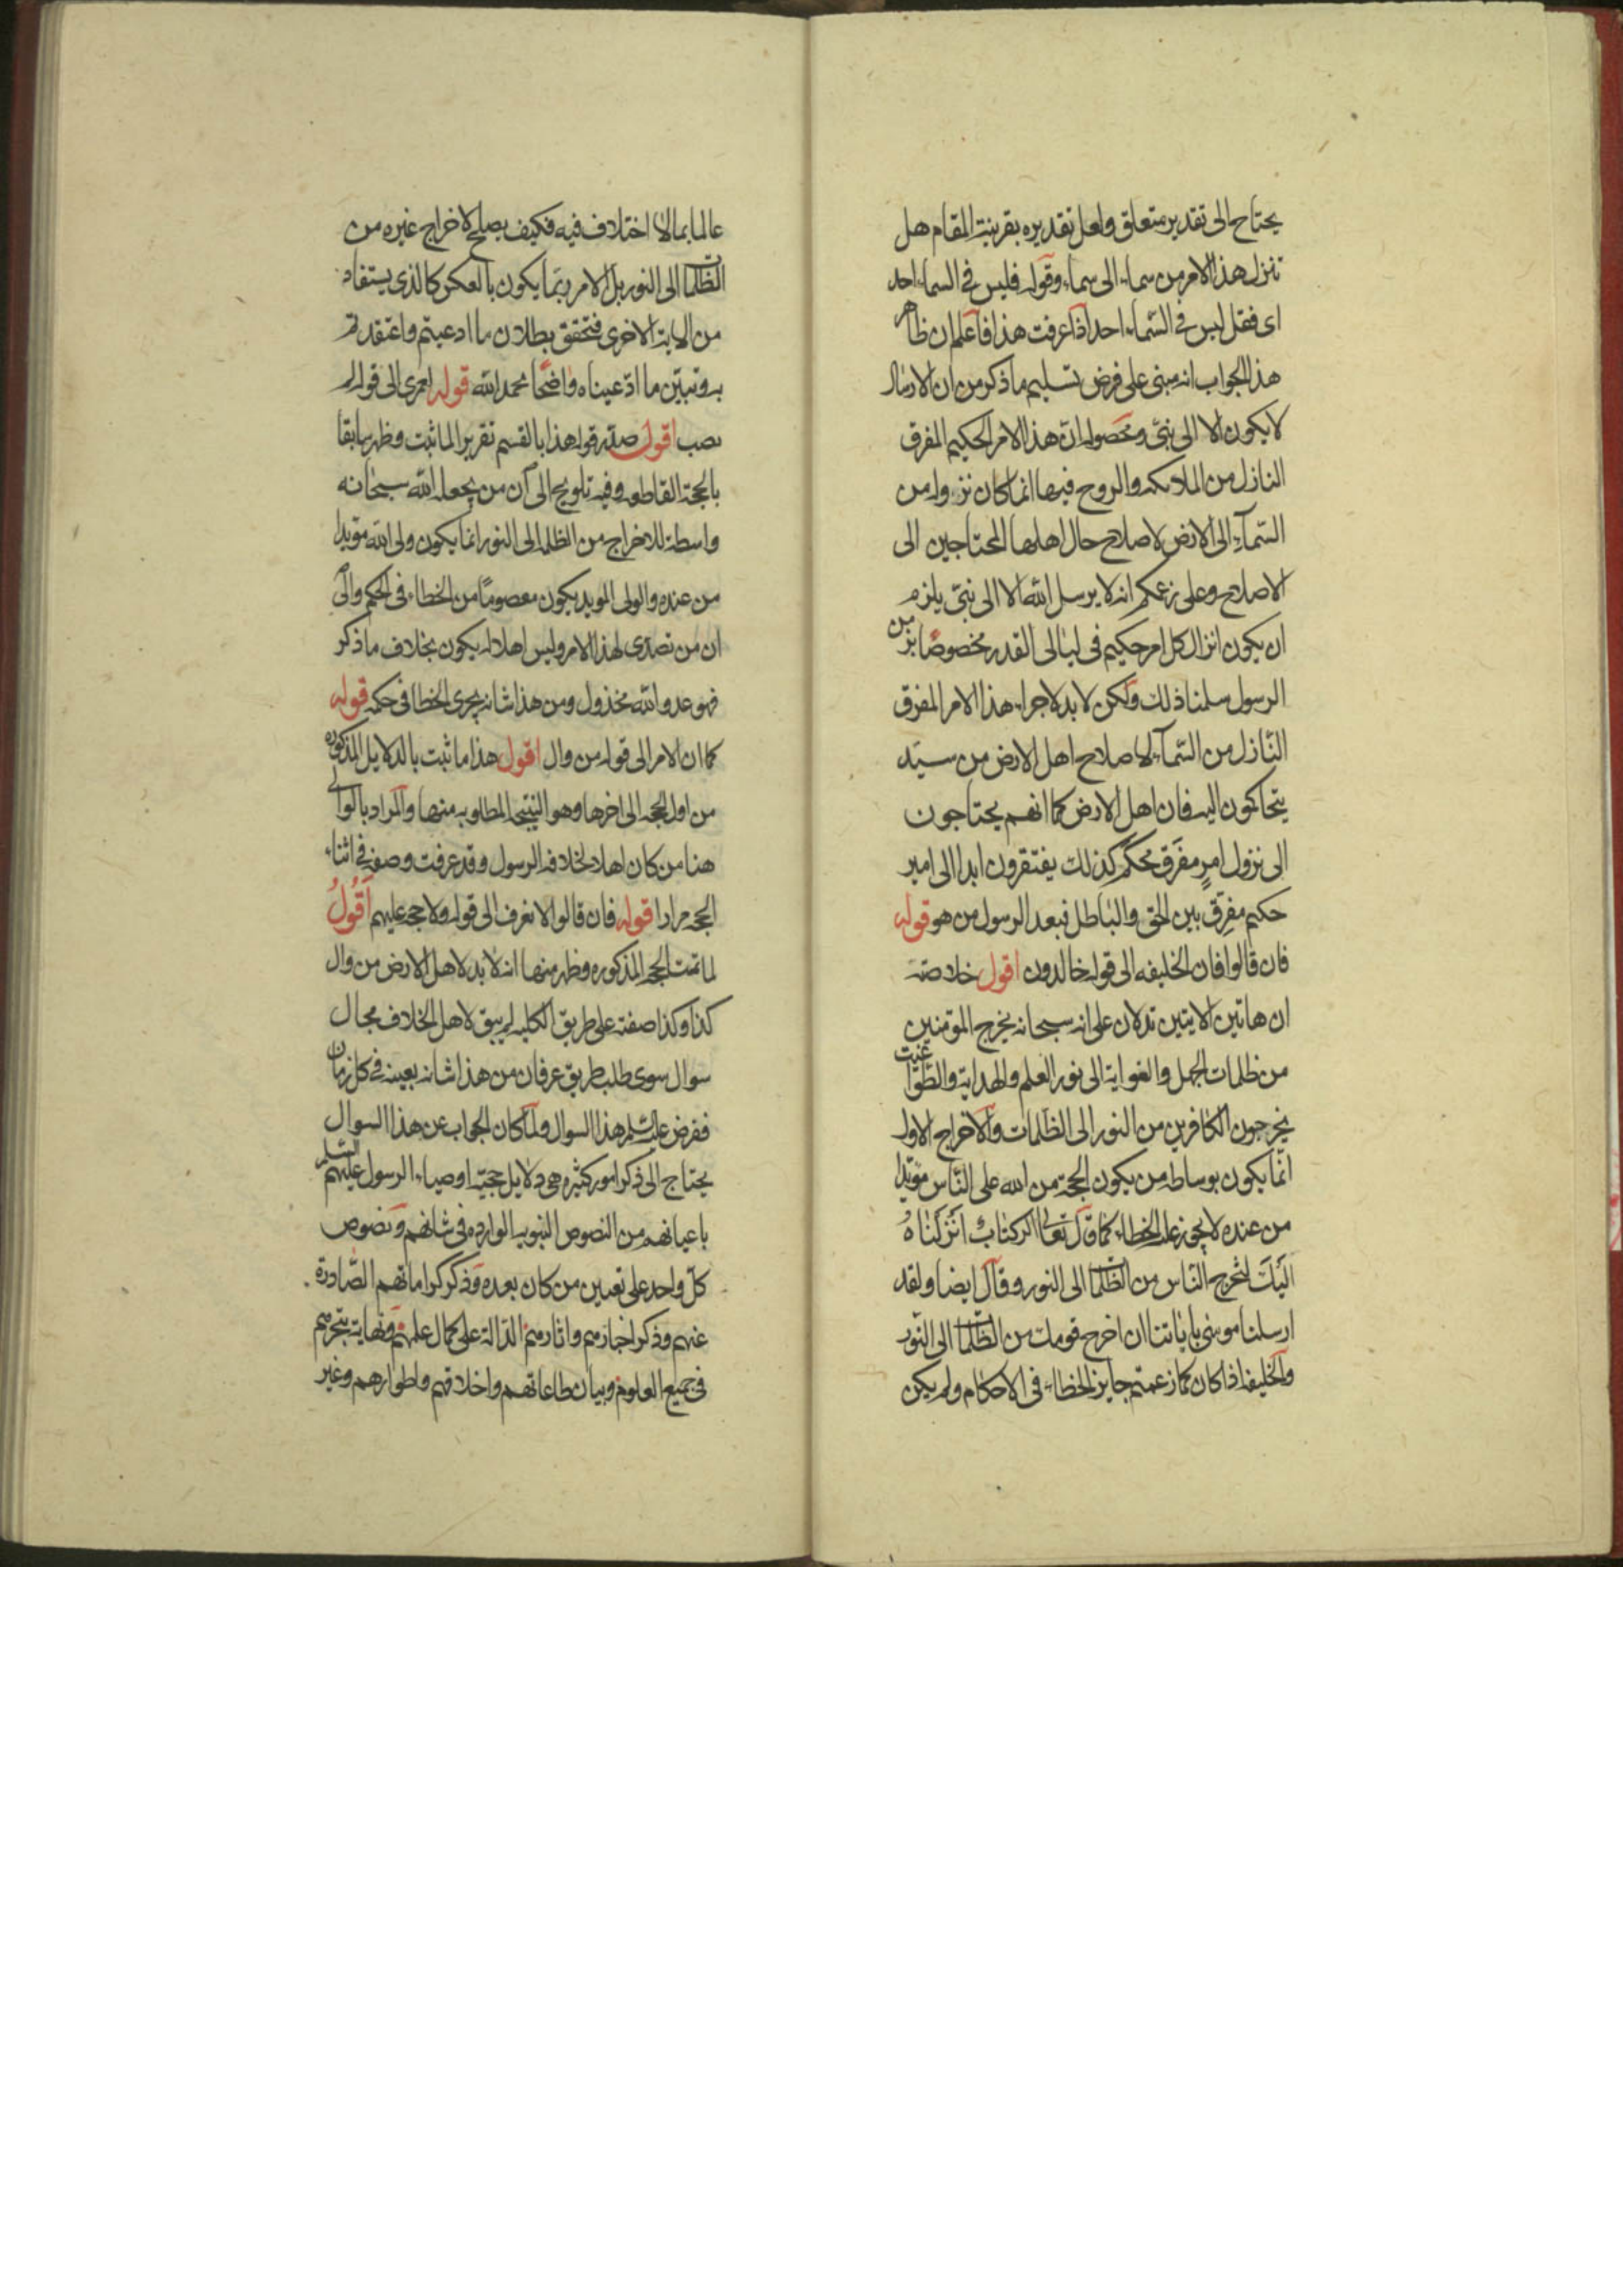 يحتاح الى تقدير متعلق ولعل تقديره بقرينة المقام هل
تنزل هذا الامر من سماء الى سماء وقوله فليس في السماء احد
اى فقل ليس في السماء احد اذا عرفت هذا فاعلم ان ظاهر
هذا الجواب انه مبنى على فرض تسليم ما ذكر من ان الارسال
لا يكون الا الى نبى ومحصوله ان هذا الامر الحكيم المفرق
النازل من الملائكه والروح فيها انما كان نزوله من
السمآء الى الارض لاصلاح حال اهلها المحتاجين الى
الاصلاح وعلى زعمكم انه لا يرسل الله الا الى نبى يلزم
ان يكون انزال كل امر حكيم فى ليالى القدر مخصوصا بزمن
الرسول سلمنا ذلك ولكن لا بد لاجراء هذا الامر المفرق
النازل من السمآء لاصلاح اهل الارض من سيد
يتحاكمون اليه فان اهل الارض كما انهم يحتاجون
الى نزول امر مفرق محكم كذلك يفتقرون ابدا الى امير
حكيم مفرق بين الحق والباطل فبعد الرسول من هو قوله
فان قالوا فان الخليفه الى قوله خالدون اقول خلاصته
ان هاتين الايتين تدلان على انه سبحانه يخرج المؤمنين
من ظلمات الجهل والغواية الى نور العلم والهداية والطواغيت
يخرجون الكافرين من النور الى الظلمات والاخراج الاول
انما يكون بوساطه من يكون الحجة من الله على الناس مؤيدا
من عنده لا يجوز عليه الخطاء كما قال تعالى الر كتاب انزلناه
اليك لتخرج الناس من الظلمات الى النور وقال ايضا ولقد
ارسلنا موسى باياتنا ان اخرج قومك من الظلمات الى النور
والخليفه اذا كان كما زعمتم جايز الخطاء فى الاحكام ولم يكن
عالما بما لا اختلاف فيه فكيف يصلح لاخراج غيره من
الظلمات الى النور بل الامر ربما يكون بالعكس كالذى يستفاد
من الاية الاخرى فتحقق بطلان ما ادعيتم واعتقدتم
به وتبين ما ادعيناه واضحا بحمد الله قوله لعمرى الى قوله لم
يصب اقول صدر قوله هذا بالقسم تقريرا لما ثبت وظهر سابقا
بالحجة القاطعه وفيه تلويح الى ان من يجعله الله سبحانه
واسطة للاخراج من الظلمات الى النور انما يكون ولى الله مؤيدا
من عنده والولى المويد يكون معصوما من الخطاء فى الحكم والى
ان من تصدى لهذا الامر وليس اهلا له يكون بخلاف ما ذكر
فهو عدو الله مخذول ومن هذا شانه يجرى الخطا فى حكمه قوله
كما ان الامر الى قوله من وال اقول هذا ما ثبت بالدلايل المذكوره
من اول الحجه الى اخرها وهو النتيجه المطلوبه منها والمراد بالوالى
هنا من كان اهلا لخلافة الرسول وقد عرفت وصفه فى اثناء
الحجه مرارا قوله فان قالوا لا نعرف الى قوله ولا حجه عليهم اقول
لما تمت الحجه المذكوره وظهر منها انه لا بد لاهل الارض من وال
كذا وكذا صفته على طريق الكليه لم يبق لاهل الخلاف مجال
سوال سوى طلب طريق عرفان من هذا شانه بعينه فى كل زمان
ففرض عليه السلم هذا السوال ولما كان الجواب عن هذا السوال
يحتاج الى ذكر امور كثيره هى دلايل حجية اوصياء الرسول عليهم السلم
باعيانهم من النصوص النبويه الوارده فى شانهم ونصوص
كل واحد على تعيين من كان بعده وذكر كراماتهم الصادرة
عنهم وذكر اخبارهم واثارهم الدالة على كمال علمهم ونهاية تبحرهم
فى جميع العلوم وبيان طاعاتهم واخلاقهم واطوارهم وغير